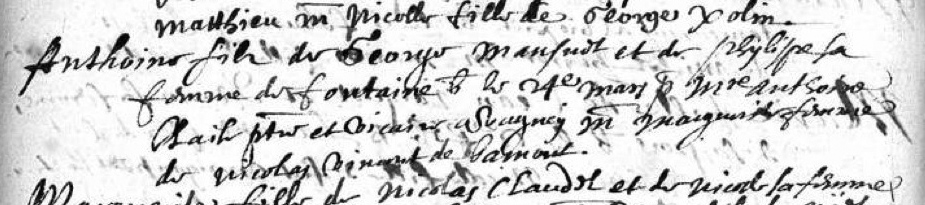 Matthieu m Nicolle fille de George Xolin.
Anthoine filz de George Mansuet et de Phylippe sa
femme de fontaine b le 24e mars p Mre Anthoine
ptre et vicaire a Vagney m marguerite femme
de Nicolas Vincent de bamont.
fille de Nicolas Claudel et de Nicole sa femme